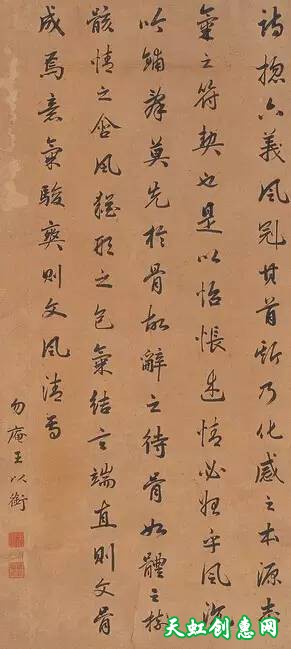 詩揔六義風冠其首斯乃化感之本源志
氣之符契也是以怊悵述情必始乎風沉
吟鋪辭莫先於骨故辭之待骨如體之樹
骸情之含風猶形之包氣結言端直則文骨
成焉意氣駿爽則文風清焉
勿庵王以銜
天虹创惠网